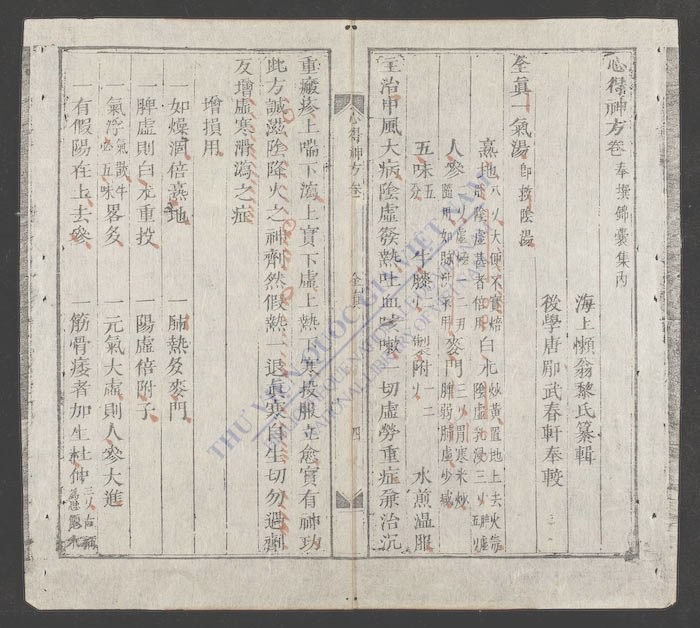 心得神方卷 奉撰錦囊集內
海上懶翁黎氏纂輯
後學唐郿武春軒奉較
全真一氣湯 即救陰湯
熟地 白朮
人參 麥門
五味 牛膝 製附 水煎溫服
主治中風大病陰虛發熱吐血咳嗽一切虛勞重症兼治沉
心得神方卷 全真 四
重癍疹上喘下瀉上實下虛上熱下寒投服立愈實有神功
此方誠滋陰降火之神劑然假熱一退真寒自生切勿過劑
反增虛寒滑瀉之症
增損用
一如燥涸倍熟地 一肺熱多麥門
一脾虛則白朮重投 一陽虛倍附子
一氣浮氣散牛五味畧多 一元氣大虛則人參大進
一有假陽在上去參 一筋骨痿者加生杜仲
THƯ VIỆN QUỐC GIA VIỆT NAM
NATIONAL LIBRARY OF VIETNAM